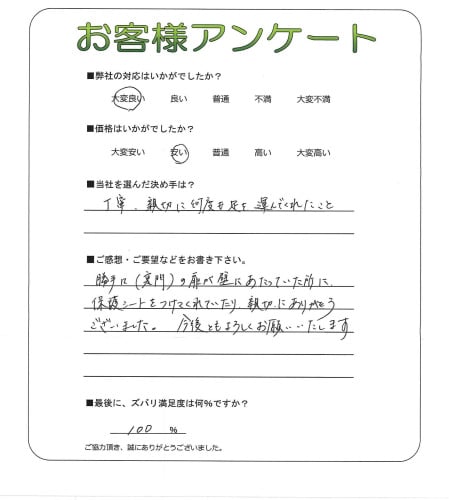 お客様アンケート
■弊社の対応はいかがでしたか?
大変良い 良い 普通 不満 大変不満
■価格はいかがでしたか?
大変安い 安い 普通 高い 大変高い
■当社を選んだ決め手は?
丁寧、親切に何度も足を運んでくれたこと
■ご感想・ご要望などをお書き下さい。
勝手口(裏門)の扉が壁にあたっていた所に、
保護シートをつけてくれていたり、親切にありがとう
ございました。 今後ともよろしくお願いいたします
■最後に、ズバリ満足度は何%ですか?
100 %
ご協力頂き、誠にありがとうございました。